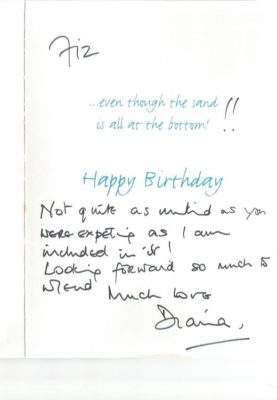 Fiz
...even though the sand
is all at the bottom! !!
Happy Birthday
Not quite as unkind as you
were expeting as I am
included in it!
Looking forward so much to
W/end
Much love
Diana,